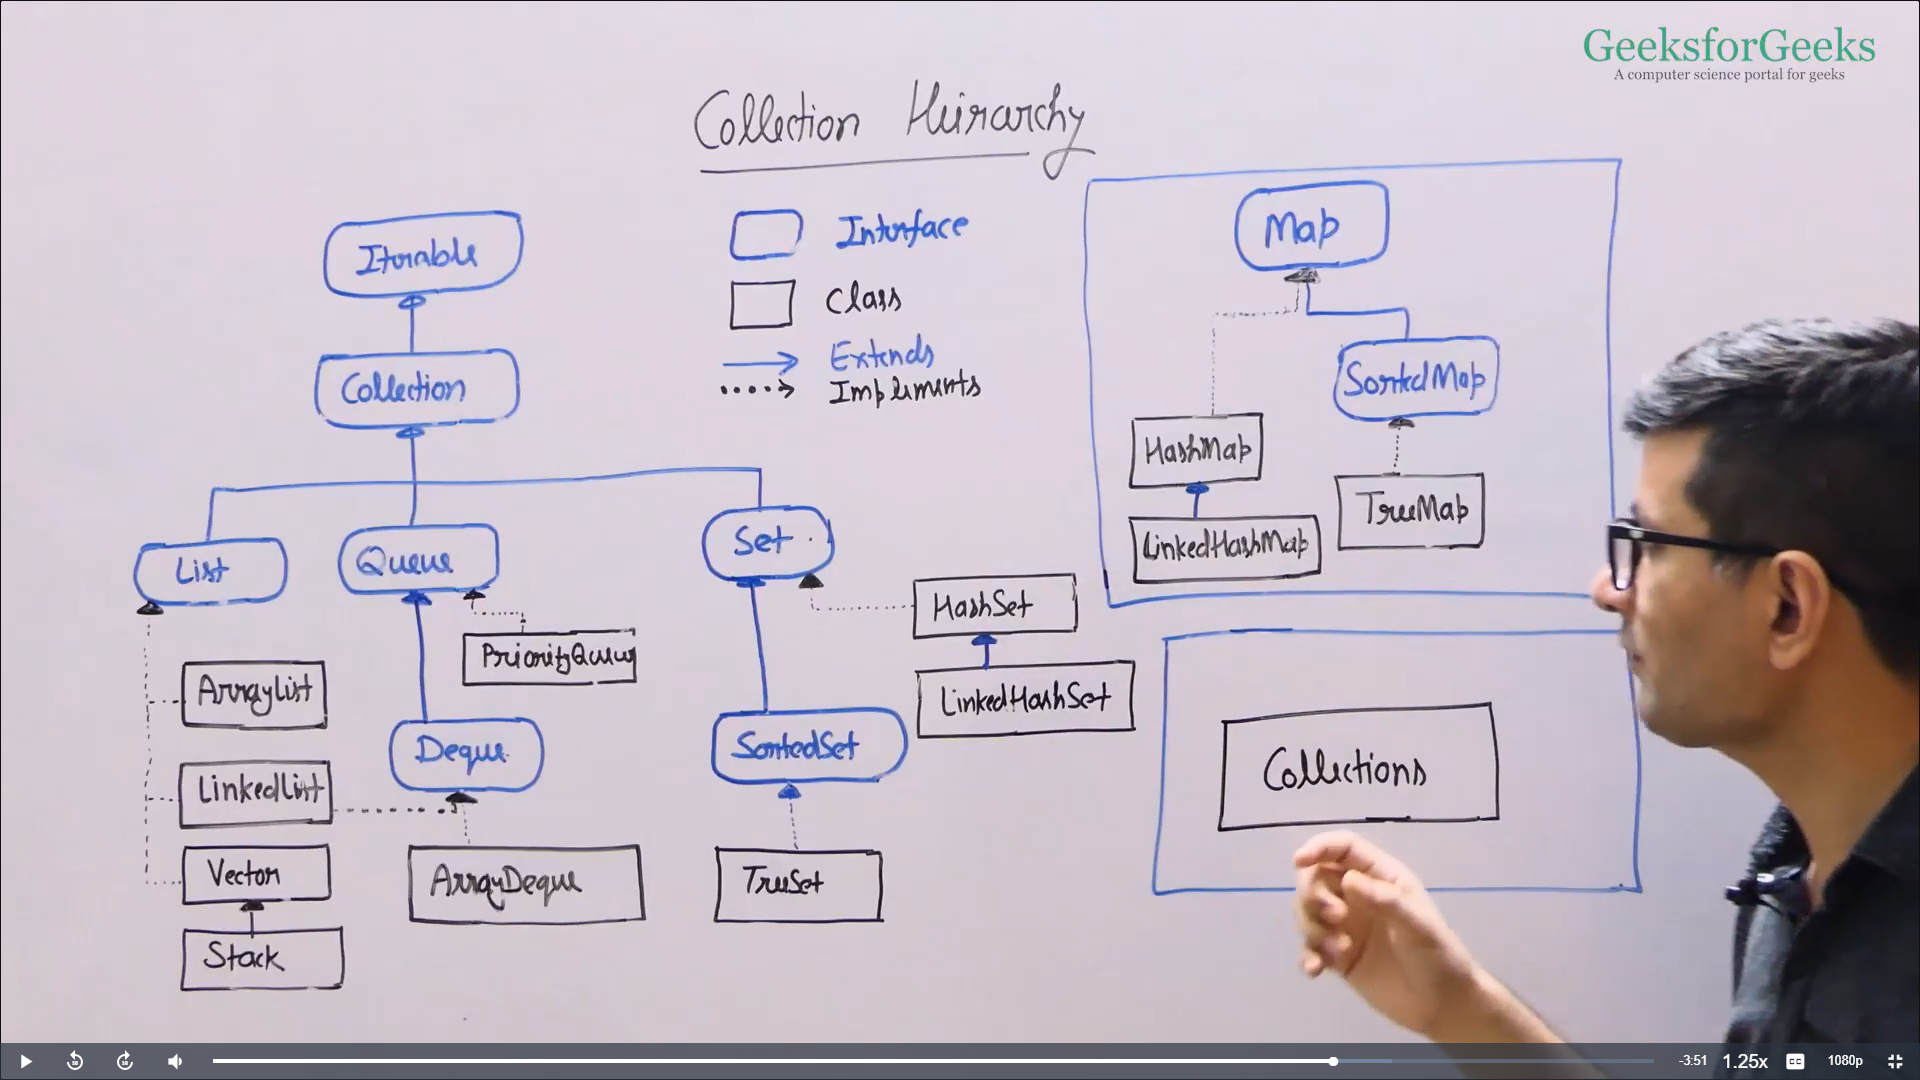 GeeksforGeeks
A computer science portal for geeks
Collection Heirarchy
Interface
Class
Extends
Implements
Iterable
Collection
List
Queue
Set
ArrayList
LinkedList
Vector
Stack
PriorityQueue
Deque
ArrayDeque
SortedSet
TreeSet
HashSet
LinkedHashSet
Map
SortedMap
HashMap
LinkedHashMap
TreeMap
Collections
10
10
-3:51
1.25x
CC
1080p